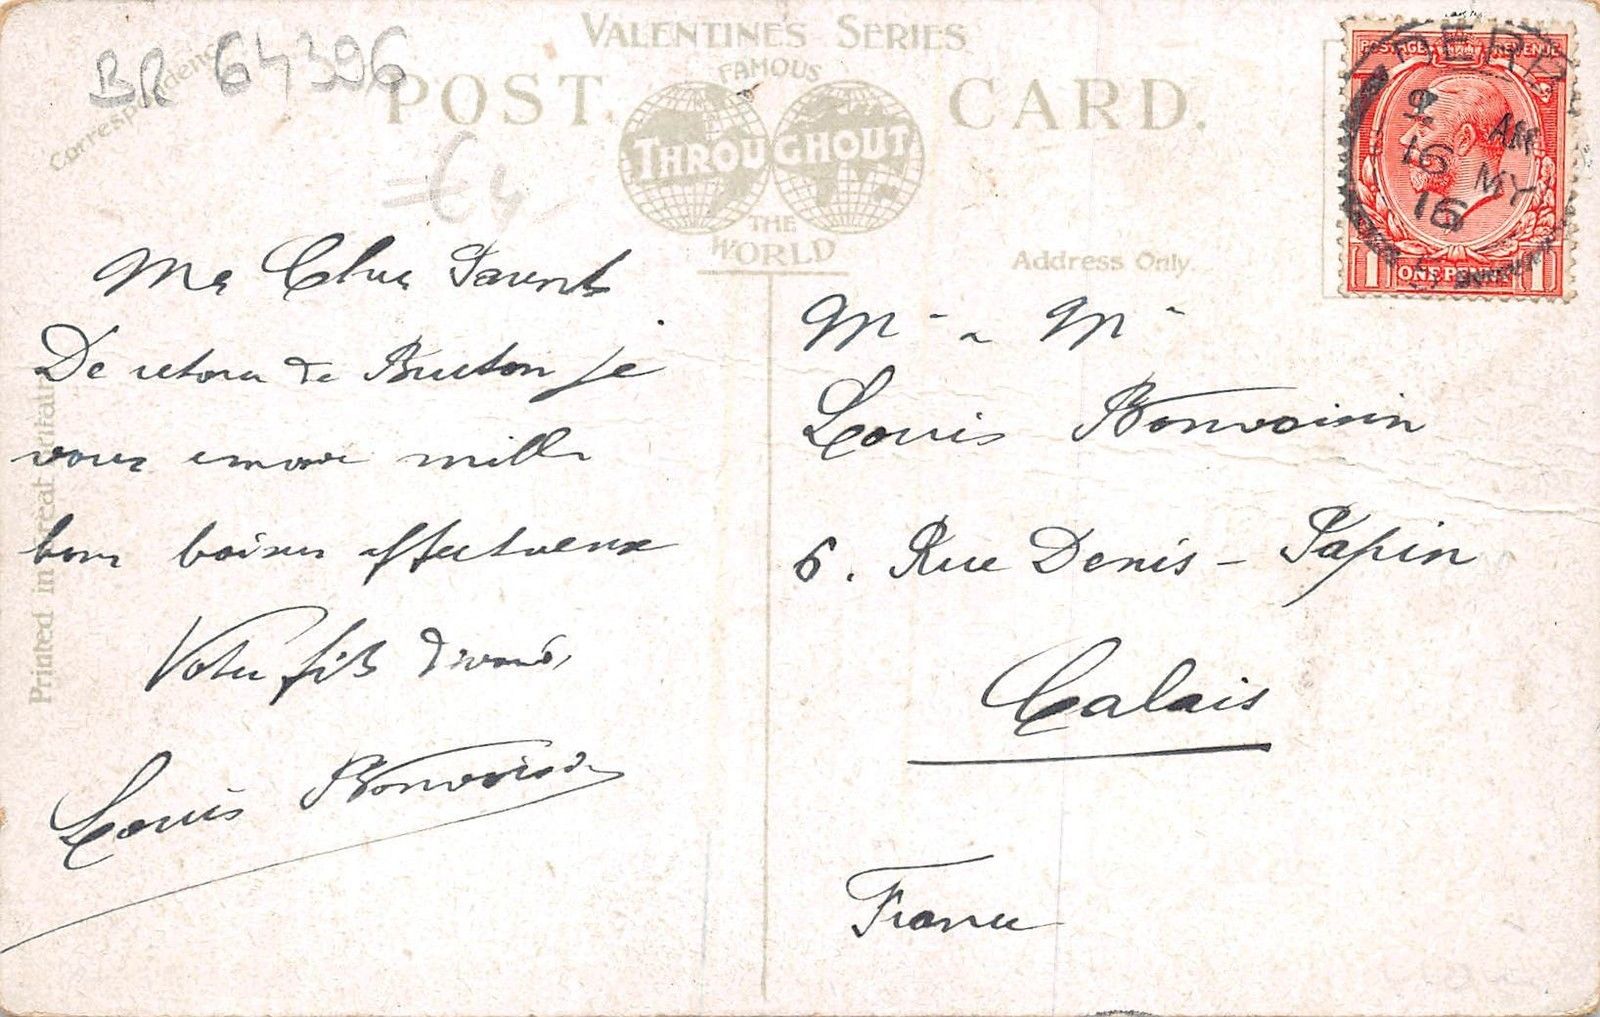 BR 64396
VALENTINE'S SERIES
FAMOUS
POST CARD.
THROUGHOUT
THE
WORLD
Correspondence
Printed in Great Britain
=€4-
Address Only
POSTAGE REVENUE
9 AM
16 MY
16
1 ONE PENNY 1
Mes Chers Parents
De retour de Buxton je
vous envoie mille
bons baisers affectueux
Votre fils dévoué,
Louis Bonvoisin
Mr & Mme
Louis Bonvoisin
6. Rue Denis-Papin
Calais
France